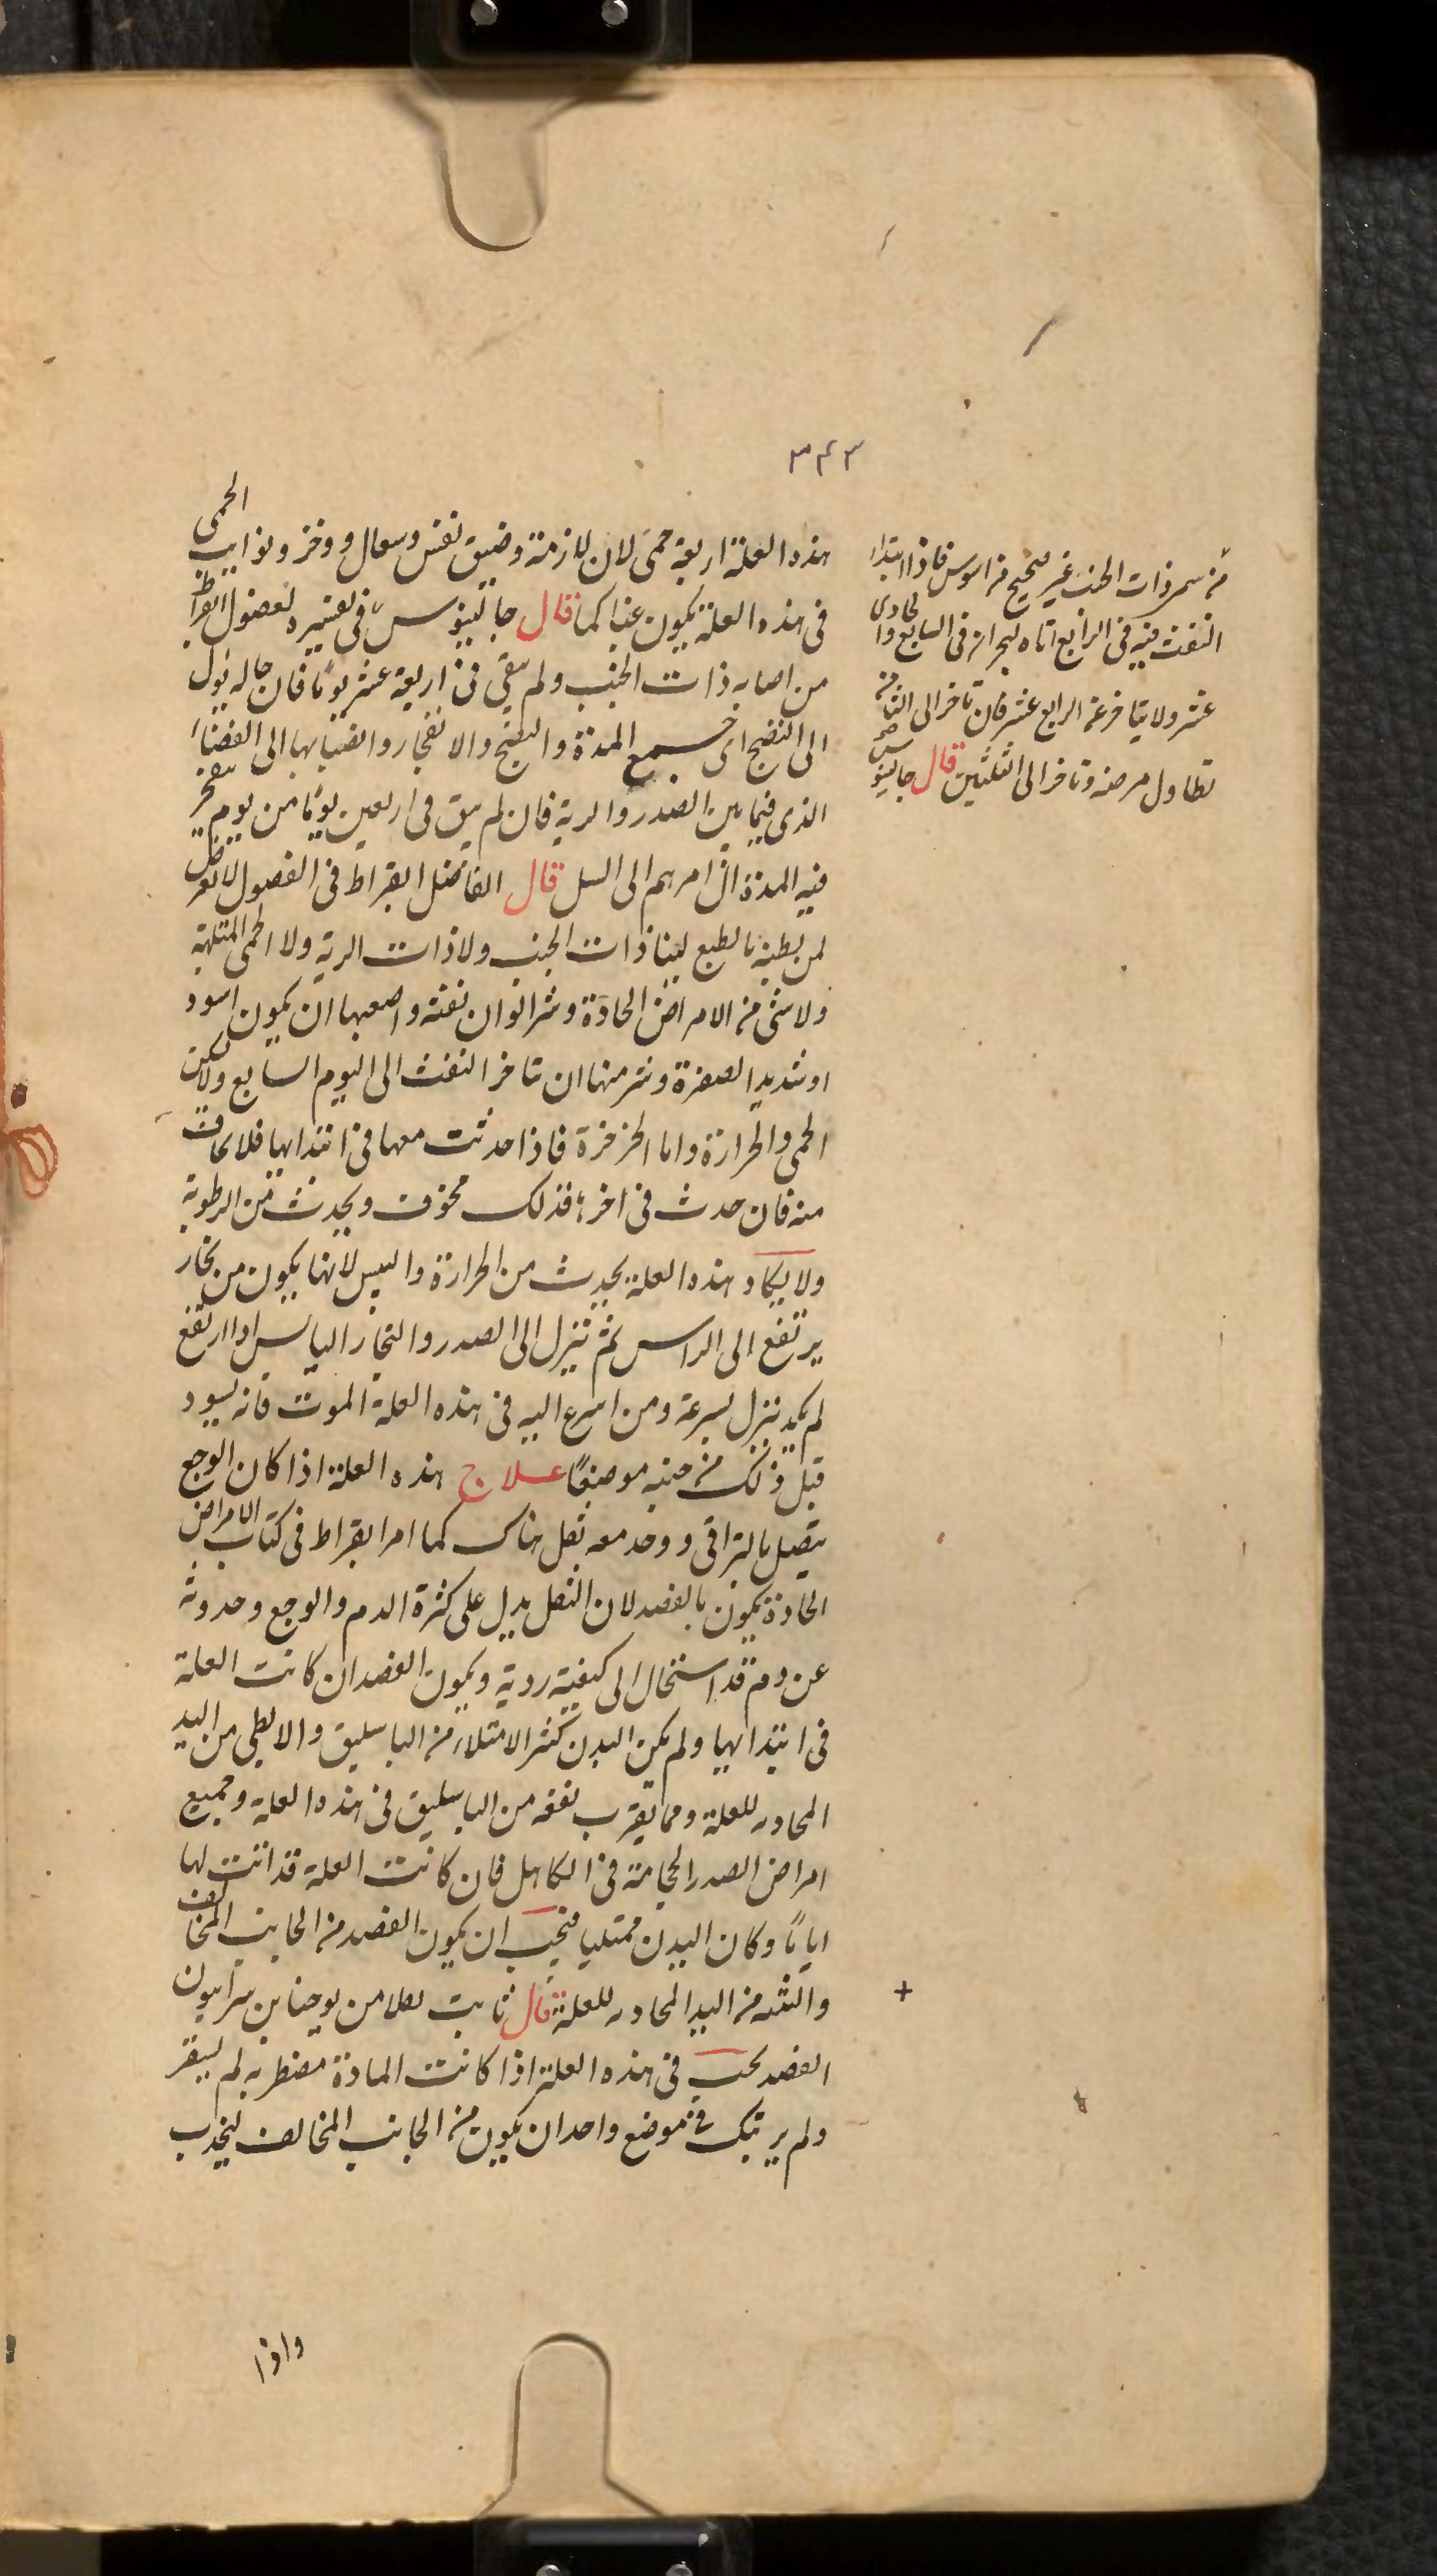 ٣٤٣
هذه العلة اربعة حمى لان لازمة وضيق نفس وسعال ووخز ونوايب الحمى
فى هذه العلة يكون غبا كما قال جالينوس فى تفسيره لفصول ابقراط
من اصابه ذات الجنب ولم ينقى فى اربعة عشر يوما فان حاله يؤل
الى النضج اى جمع المدة والنضج والانفجار وانصبابها الى الفضاء
الذى فيما بين الصدر والرية فان لم ينق فى اربعين يوما من يوم ينفجر
فيه المدة ال امرهم الى السل قال الفاضل ابقراط فى الفصول لا تعرض
لمن بطنه بالطبع لينا ذات الجنب ولا ذات الرية ولا الحمى الملتهبة
ولا شئ من الامراض الحادة وشر الوان نفثه واصعبها ان يكون اسود
او شديد الصفرة وشر منها ان تاخر النفث الى اليوم السابع ولا تسكن
الحمى والحرارة واما الخرخرة فاذا حدثت معها فى ابتدايها فلا يخاف
منه فان حدث فى اخره فذلك مخوف ويحدث من الرطوبة
ولا يكاد هذه العلة يحدث من الحرارة واليبس لانها يكون من بخار
يرتفع الى الراس ثم تنزل الى الصدر والبخار اليابس اذا ارتفع
لم يكد ينزل بسرعة ومن اسرع اليه فى هذه العلة الموت فانه يسود
قبل ذلك من جنبه موضعًا علاج هذه العلة اذا كان الوجع
يتصل بالتراقى ووجد معه ثقل هناك كما امر ابقراط فى كتاب الامراض
الحادة يكون بالفصد لان الثقل يدل على كثرة الدم والوجع وحدوثه
عن دم قد استحال الى كيفية ردية ويكون الفصد ان كانت العلة
فى ابتدايها ولم يكن البدن كثير الامتلاء من الباسليق والابطى من اليد
المحاذيه للعلة ومما يقرب نفعه من الباسليق فى هذه العلة وجميع
امراض الصدر الحجامة فى الكاهل فان كانت العلة قد اتت لها
اياما وكان البدن ممتليا فيجب ان يكون الفصد من الجانب المخالف
من اليد المحاذيه للعلة قال ثابت من يوحنا بن سرابيون
الفصد يجب فى هذه العلة اذا كانت المادة مضطربه لم يستقر
ولم يرتبك فى موضع واحد ان يكون من الجانب المخالف ليجذب
واذا
من سمر ذات الجنب غير صحيح من فاذا ابتداء
النفث فيه فى الرابع اتاه البحران فى السابع والحادى
عشر ولا يتاخر عن الرابع عشر فان تاخر الى الثامن
تطاول مرضه وتاخر الى الثلثين قال جالينوس